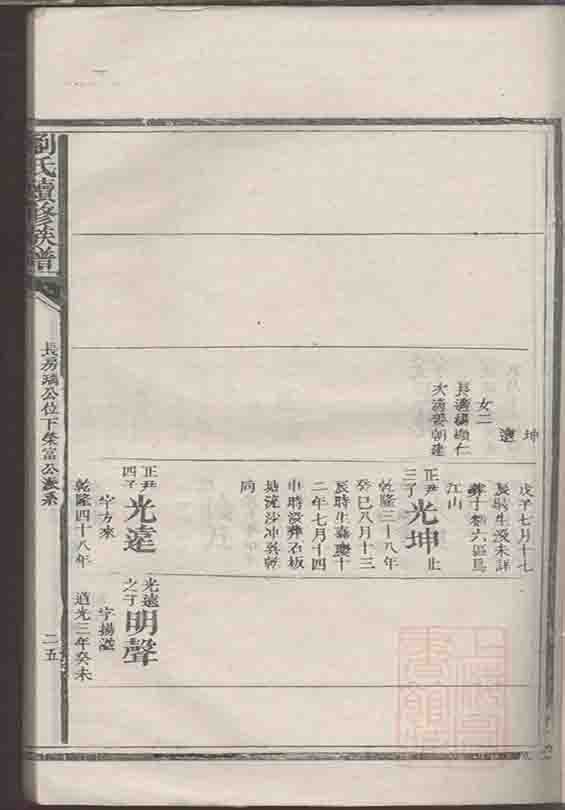 劉氏續修族譜
長房瑀公位下榮富公派系
二五
坤
遠
女二
長適楊順仁
次適晏朝建
戊子七月十七
辰時生沒未詳
葬于蔡六區烏
江山
正尹
三子
光坤
止
乾隆三十八年
癸巳八月十三
辰時生嘉慶十
二年七月十四
申時沒葬石板
塘流沙冲巽乾
向
正尹
四子
光遠
字方來
乾隆四十八年
光遠
之子
明聲
字揚謚
道光三年癸未